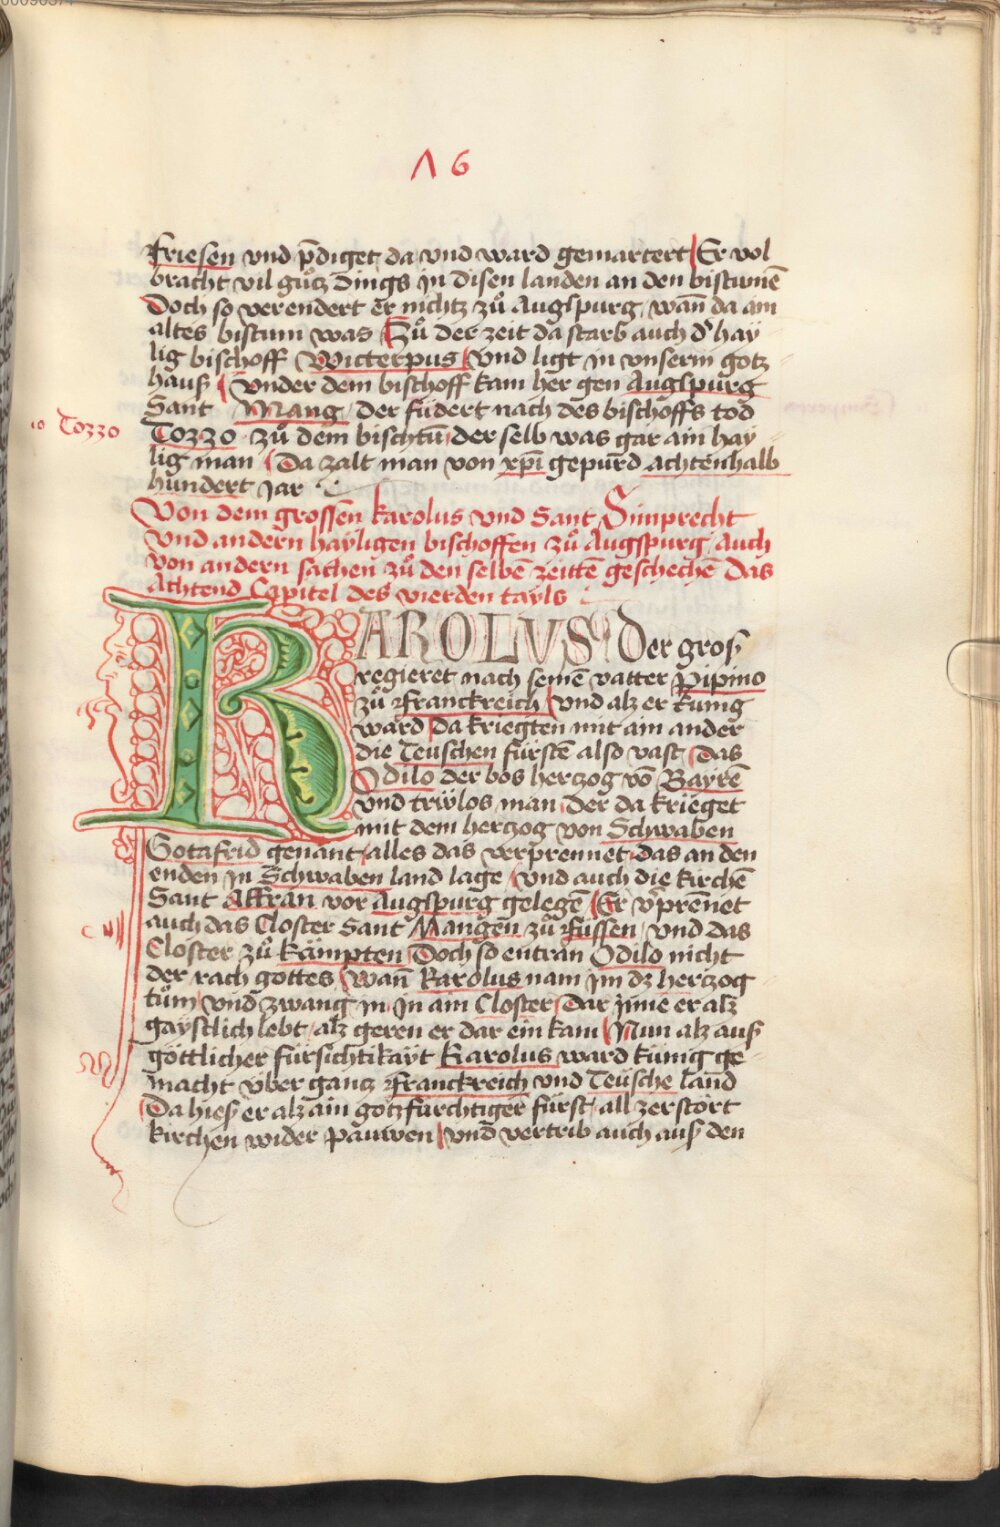 Λ6
friesen vnd p̄diget da vnd ward gemartert Er vol
bracht vil gůtz dings jn disen landen an den bistumē
Doch so verendert er nichtz zů Auglspurg wan̄ da ain
altes bistum was Zů der zeit da starb auch d hay
lig bischoff Wicterpus Vnd ligt jn vnserm gotz
hauß vnder dem bischoff kam her gen Auglspurg
Sant Mang der fudert nach des bischoffs tod
10 Tozzo
Tozzo zů dem bischtū der selb was gar ain hay
lig man Da zalt man von xp̄i gepurd achtenhalb
hundert jar
Von dem grossen karolus vnd Sant Simprecht
vnd andern hayligen bischoffen zů Augspurg Auch
von andern sachen zů den selbē zeittē geschechē Das
Achtend Capitel des vierden tayls
KAROLVS der groß
regieret nach seinē vatter Pipino
zů Franckreich Vnd alz er kunig
ward da kriegten mit ain ander
die Teuschen fürstē also vast Das
Odilo der bos hertzog vō Bayrē
vnd trwlos man der da krieget
mit dem hertzog von Schwaben
Gotafrid genant alles das verprennet das an den
enden jn Schwaben land lage vnd auch die kirchē
Sant Affran vor Augspurg gelegē Er v̄prenet
auch das Closter Sant Mangen zů Fussen vnd das
Closter zů kämpten Doch so entran Odilo nicht
der rach gottes wan̄ Karolus nam jm dz hertzog
tům vnd zwang jn jn ain Closter Dar jnne er alz
gaystlich lebt alz geren er dar ein kam Nun alz auß
göttlicher fürsichtikayt Karolus ward künig ge
macht vber gantz Franckreich vnd Teusche land
Da hieß er alz ain gotzfurchtiger fürst all zerstört
kirchen wider pauwen vnd vertrib auch auß den